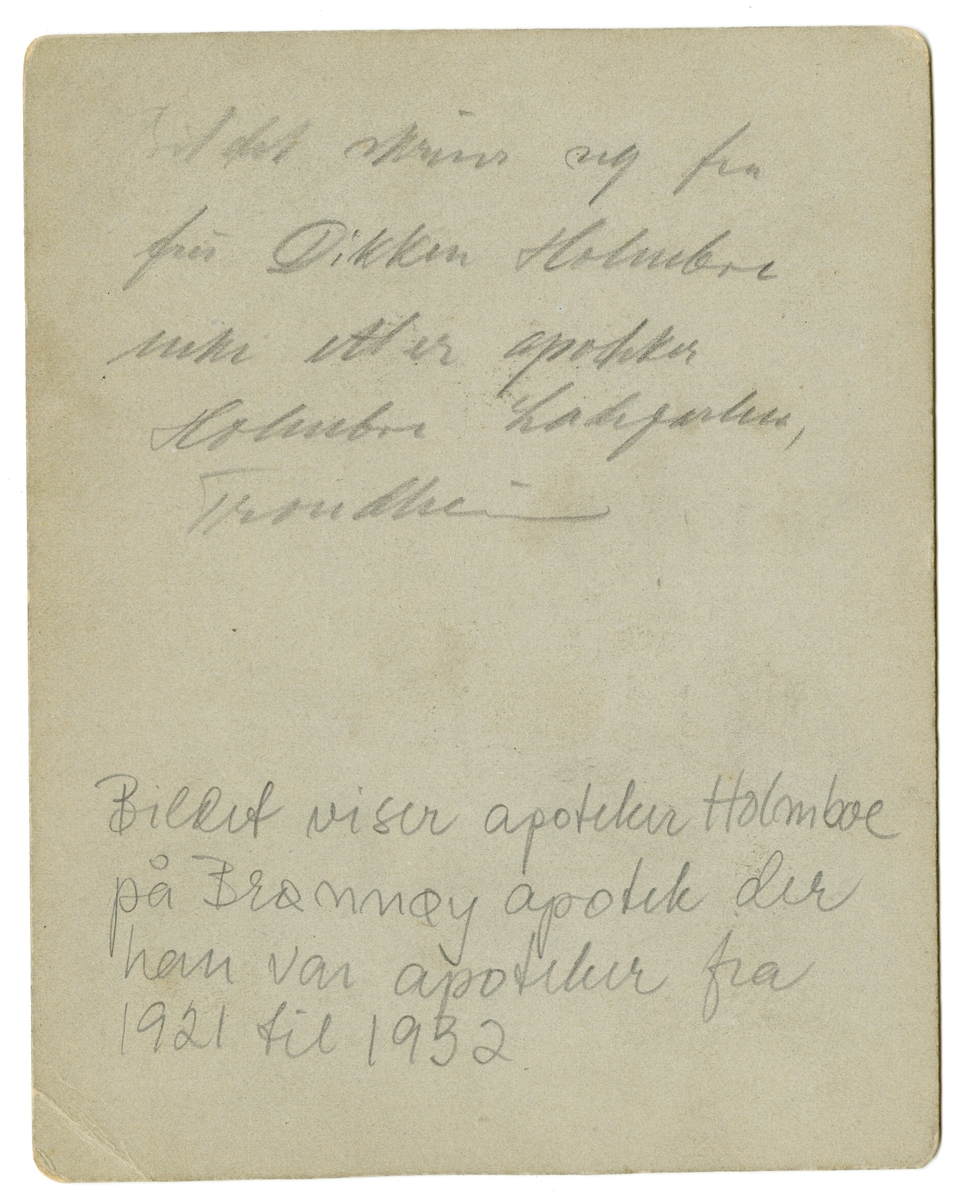 Bildet skriver seg fra
fru Dikken Holmboe
enke etter apoteker
Holmboe Ladegården,
Trondheim
Billet viser apoteker Holmboe
på Brønnøy apotek der
han var apoteker fra
1921 til 1932